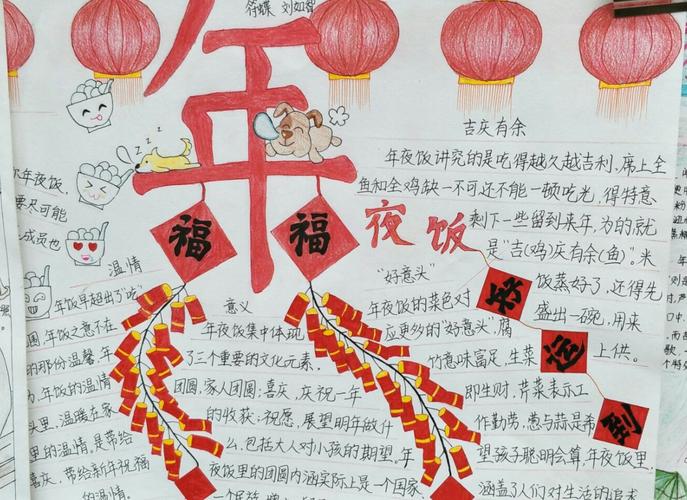 符蝶 刘如智
年
夜饭
福
福
好
运
到
吉庆有余
年夜饭讲究的是吃得越久越吉利,席上全
鱼和全鸡缺一不可还不能一顿吃光,得特意
剩下一些留到来年,为的就
是“吉(鸡)庆有余(鱼)”。米
饭蒸好了,还得先
盛出一碗,用来
上供。
“好意头”
年夜饭的菜色对
应更多的“好意头”,腐
竹意味富足,生菜
即生财,芹菜表示工
作勤劳,葱与蒜是希
望孩子聪明会算,年夜饭里
涵盖了人们对生活的追求
意义
年夜饭集中体现
了三个重要的文化元素。
团圆,家人团圆;喜庆,庆祝一年
的收获;祝愿,展望明年做什
么,包括大人对小孩的期望,年
夜饭里的团圆内涵实际上是一个国家、
年夜饭,
要尽可能
成员也
温情
年饭早超出了“吃”
围,年饭之意不在
的那份温馨,年
为,年饭的温情
头里,温暖在家
里的温情,是带给
喜庆,带给新年祝福
的温情。